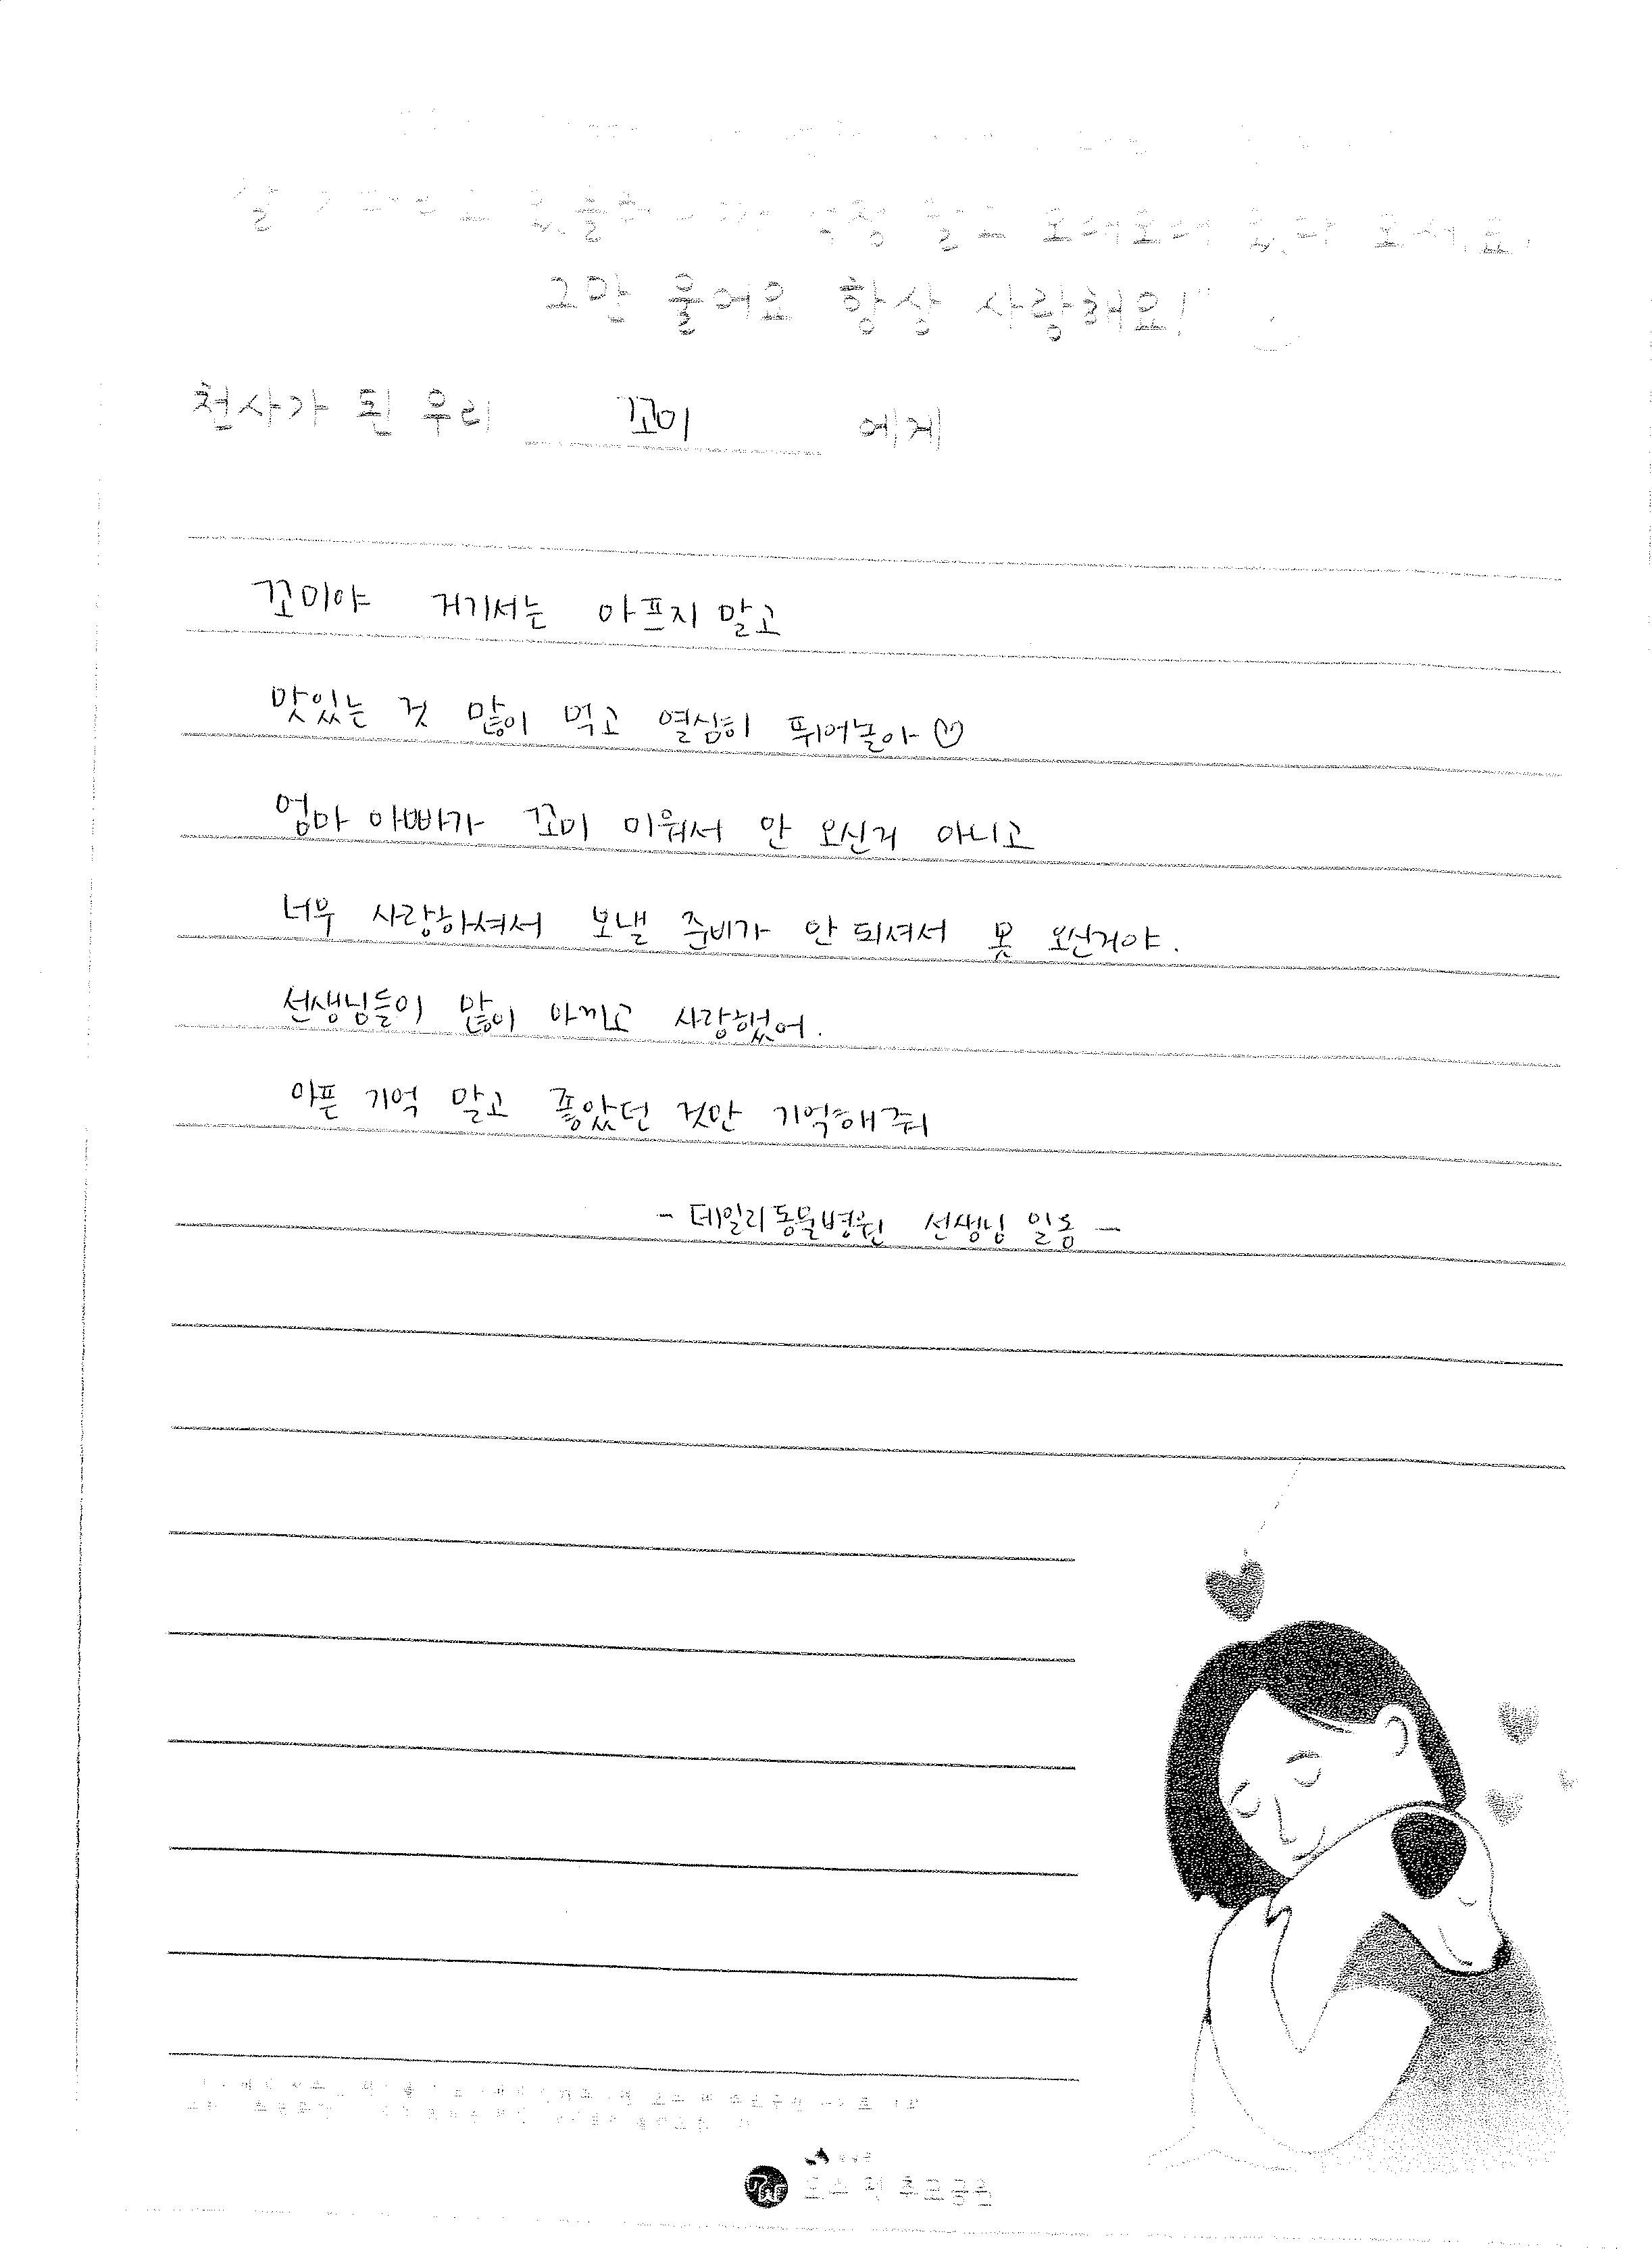 그만 울어요 항상 사랑해요!"
천사가 된 우리 꼬미 에게
꼬미야 거기서는 아프지 말고
맛있는 것 많이 먹고 열심히 뛰어놀아♡
엄마 아빠가 꼬미 미워서 안 오신거 아니고
너무 사랑하셔서 보낼 준비가 안 되셔서 못 오신거야.
선생님들이 많이 아끼고 사랑했어.
아픈 기억 말고 좋았던 것만 기억해줘
- 데일리동물병원 선생님 일동 -
추모공원